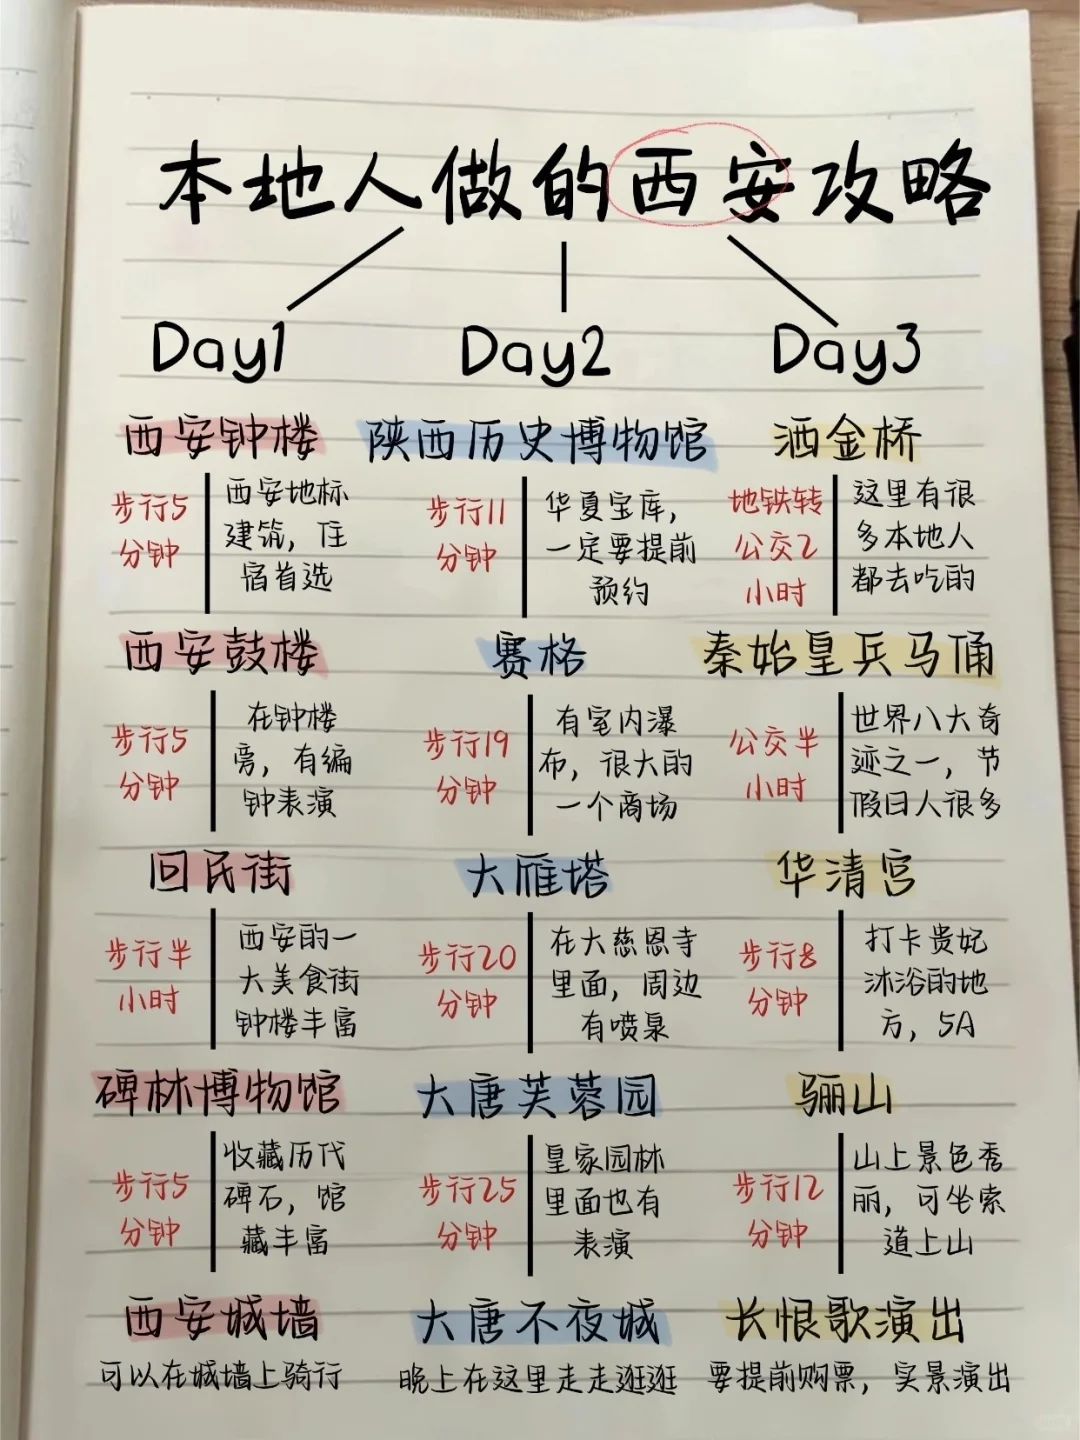 本地人做的西安攻略
Day1
西安钟楼
步行5
分钟
西安地标
建筑，住
宿首选
西安鼓楼
步行5
分钟
在钟楼
旁，有编
钟表演
回民街
步行半
小时
西安的一
大美食街
钟楼丰富
碑林博物馆
步行5
分钟
收藏历代
碑石，馆
藏丰富
西安城墙
可以在城墙上骑行
Day2
陕西历史博物馆
步行11
分钟
华夏宝库，
一定要提前
预约
赛格
步行19
分钟
有室内瀑
布，很大的
一个商场
大雁塔
步行20
分钟
在大慈恩寺
里面，周边
有喷泉
大唐芙蓉园
步行25
分钟
皇家园林
里面也有
表演
大唐不夜城
晚上在这里走走逛逛
Day3
洒金桥
地铁转
公交2
小时
这里有很
多本地人
都去吃的
秦始皇兵马俑
公交半
小时
世界八大奇
迹之一，节
假日人很多
华清宫
步行8
分钟
打卡贵妃
沐浴的地
方，5A
骊山
步行12
分钟
山上景色秀
丽，可坐索
道上山
长恨歌演出
要提前购票，实景演出